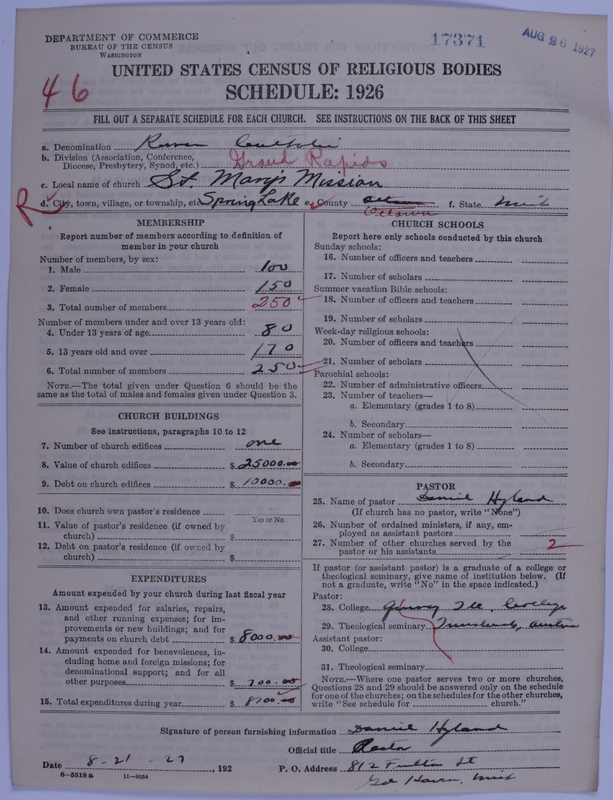 DEPARTMENT OF COMMERCE
BUREAU OF THE CENSUS
WASHINGTON
17371
AUG 26 1927
46
UNITED STATES CENSUS OF RELIGIOUS BODIES
SCHEDULE: 1926
FILL OUT A SEPARATE SCHEDULE FOR EACH CHURCH. SEE INSTRUCTIONS ON THE BACK OF THIS SHEET
a. Denomination Roman Catholic
b. Division (Association, Conference,
Diocese, Presbytery, Synod, etc.) Grand Rapids
c. Local name of church St. Mary's Mission
R.
d. City, town, village, or township, etc. Spring Lake e. County Ottawa f. State Mich
Ottawa
MEMBERSHIP
Report number of members according to definition of
member in your church
Number of members, by sex:
1. Male 100
2. Female 150
3. Total number of members 250
Number of members under and over 13 years old:
4. Under 13 years of age 80
5. 13 years old and over 170
6. Total number of members 250
NOTE.—The total given under Question 6 should be the
same as the total of males and females given under Question 3.
CHURCH BUILDINGS
See instructions, paragraphs 10 to 12
7. Number of church edifices one
8. Value of church edifices $ 25000.00
9. Debt on church edifices $ 10000.
10. Does church own pastor's residence
Yes or No
11. Value of pastor's residence (if owned by
church) $
12. Debt on pastor's residence (if owned by
church) $
EXPENDITURES
Amount expended by your church during last fiscal year
13. Amount expended for salaries, repairs,
and other running expenses; for im-
provements or new buildings; and for
payments on church debt $ 8000.00
14. Amount expended for benevolences, in-
cluding home and foreign missions; for
denominational support; and for all
other purposes $ 700.00
15. Total expenditures during year $ 8700.00
CHURCH SCHOOLS
Report here only schools conducted by this church
Sunday schools:
16. Number of officers and teachers
17. Number of scholars
Summer vacation Bible schools:
18. Number of officers and teachers
19. Number of scholars
Week-day religious schools:
20. Number of officers and teachers
21. Number of scholars
Parochial schools:
22. Number of administrative officers
23. Number of teachers—
a. Elementary (grades 1 to 8)
b. Secondary
24. Number of scholars—
a. Elementary (grades 1 to 8)
b. Secondary
PASTOR
25. Name of pastor Daniel Hyland
(If church has no pastor, write "None")
26. Number of ordained ministers, if any, em-
ployed as assistant pastors
27. Number of other churches served by the
pastor or his assistants 2
If pastor (or assistant pastor) is a graduate of a college or
theological seminary, give name of institution below. (If
not a graduate, write "No" in the space indicated.)
Pastor:
28. College College
29. Theological seminary Austria
Assistant pastor:
30. College
31. Theological seminary
NOTE.—Where one pastor serves two or more churches,
Questions 28 and 29 should be answered only on the schedule
for one of the churches; on the schedules for the other churches,
write "See schedule for church."
Signature of person furnishing information Daniel Hyland
Official title Pastor
Date 8-21-27, 192
P. O. Address 812 Fulton St
Gd Haven, Mich
8—5518a 11—9054